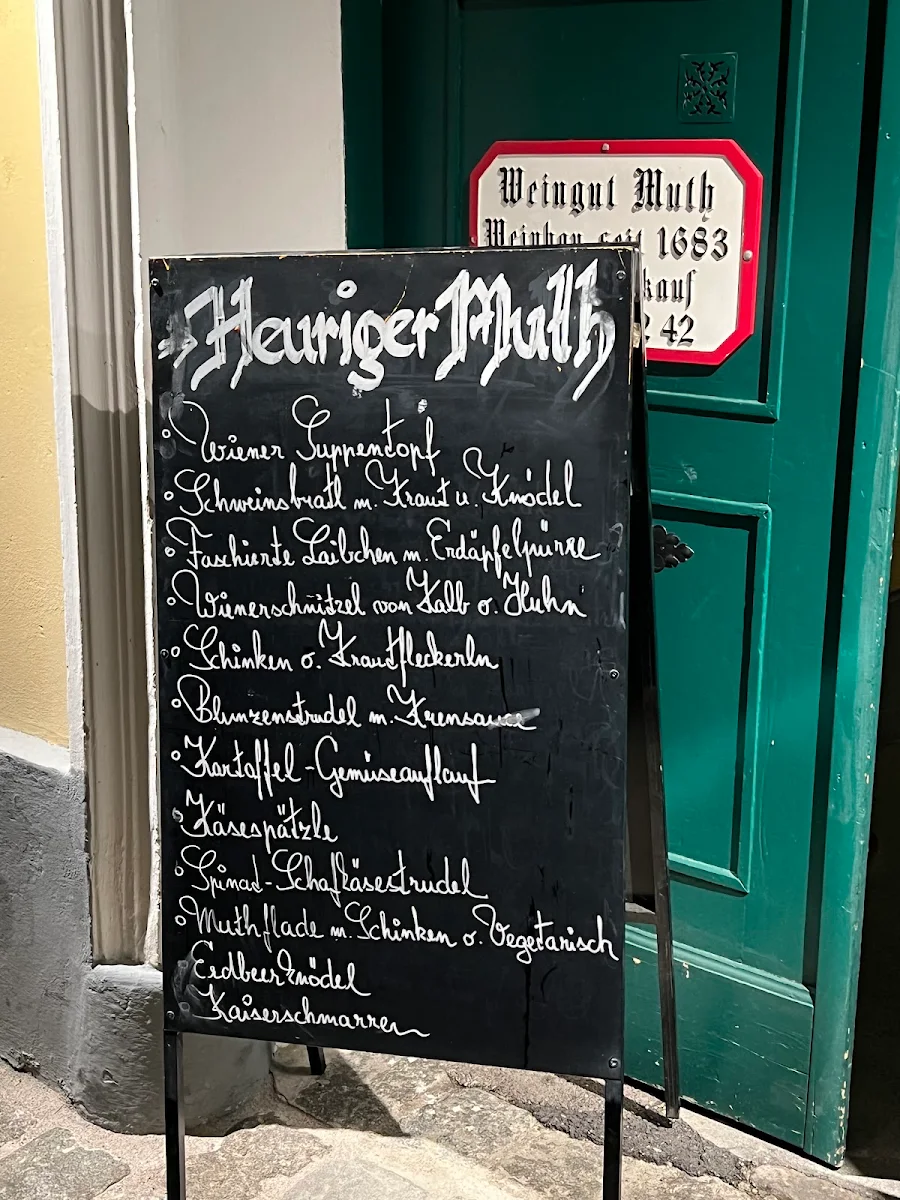 Weingut Muth
seit 1683
kauf
42
Heuriger Muth
Wiener Suppentopf
Schweinsbratl m. Kraut u. Knödel
Faschierte Laibchen m. Erdäpfelpürre
Wienerschnitzel von Kalb o. Huhn
Schinken o. Krautfleckerln
Blunzenstrudel m. Krensauce
Kartoffel-Gemüseauflauf
Käsespätzle
Spinat-Schafkäsestrudel
Muthflade m. Schinken o. Vegetarisch
Erdbeerknödel
Kaiserschmarren